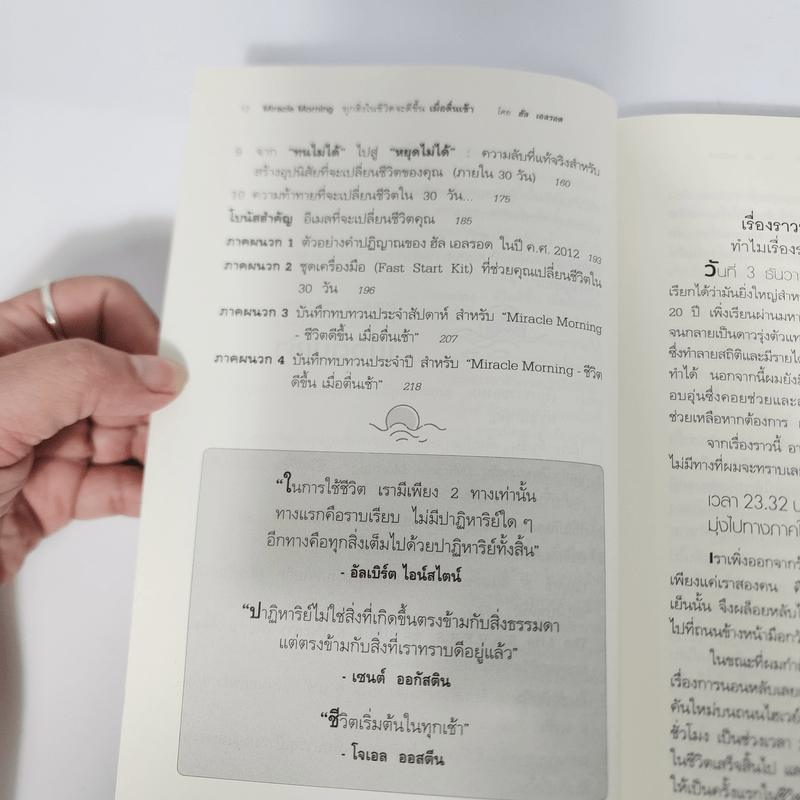 Miracle Morning ทุกสิ่งในชีวิตจะดีขึ้น เมื่อตื่นเช้า โดย ฮัล เอลรอด
9 จาก "ทนไม่ได้" ไปสู่ "หยุดไม่ได้" : ความลับที่แท้จริงสำหรับ
สร้างอุปนิสัยที่จะเปลี่ยนชีวิตของคุณ (ภายใน 30 วัน) 160
10 ความท้าทายที่จะเปลี่ยนชีวิตใน 30 วัน... 175
โบนัสสำคัญ อีเมลที่จะเปลี่ยนชีวิตคุณ 185
ภาคผนวก 1 ตัวอย่างคำปฏิญาณของ ฮัล เอลรอด ในปี ค.ศ. 2012 193
ภาคผนวก 2 ชุดเครื่องมือ (Fast Start Kit) ที่ช่วยคุณเปลี่ยนชีวิตใน
30 วัน 196
ภาคผนวก 3 บันทึกทบทวนประจำสัปดาห์ สำหรับ "Miracle Morning
- ชีวิตดีขึ้น เมื่อตื่นเช้า" 207
ภาคผนวก 4 บันทึกทบทวนประจำปี สำหรับ "Miracle Morning - ชีวิต
ดีขึ้น เมื่อตื่นเช้า" 218
"ในการใช้ชีวิต เรามีเพียง 2 ทางเท่านั้น
ทางแรกคือราบเรียบ ไม่มีปาฏิหาริย์ใด ๆ
อีกทางคือทุกสิ่งเต็มไปด้วยปาฏิหาริย์ทั้งสิ้น"
- อัลเบิร์ต ไอน์สไตน์
"ปาฏิหาริย์ไม่ใช่สิ่งที่เกิดขึ้นตรงข้ามกับสิ่งธรรมดา
แต่ตรงข้ามกับสิ่งที่เราทราบดีอยู่แล้ว"
- เซนต์ ออกัสติน
"ชีวิตเริ่มต้นในทุกเช้า"
- โจเอล ออสตีน
เรื่องราว
ทำไมเรื่อง
วันที่ 3 ธันวา
เรียกได้ว่ามันยิ่งใหญ่สำห
20 ปี เพิ่งเรียนผ่านมหา
จนกลายเป็นดาวรุ่งตัวแท
ซึ่งทำลายสถิติและมีรายได
ทำได้ นอกจากนี้ผมยังมี
อบอุ่นซึ่งคอยช่วยและส
ช่วยเหลือหากต้องการ
จากเรื่องราวนี้ อา
ไม่มีทางที่ผมจะทราบเล
เวลา 23.32 น
มุ่งไปทางภาคใ
เราเพิ่งออกจากร
เพียงแค่เราสองคน
เย็นนั้น จึงผล็อยหลับไ
ไปที่ถนนข้างหน้ามือกว
ในขณะที่ผมกำ
เรื่องการนอนหลับเลย
คันใหม่บนถนนไฮเวย์
ชั่วโมง เป็นช่วงเวลา
ในชีวิตเสร็จสิ้นไป แล
ให้เป็นครั้งแรกในชีวิต